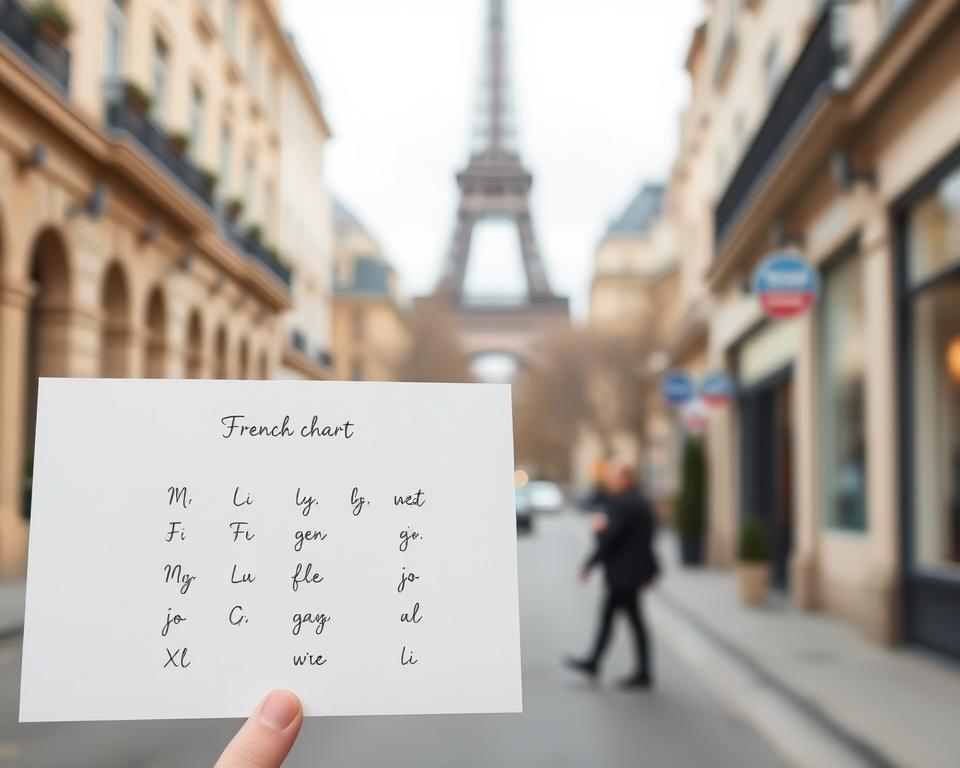 French chart
M, Li ly. by. wet
Fi Fi gen go.
My Lu fle jo
jo G. gay al
Xl wre li